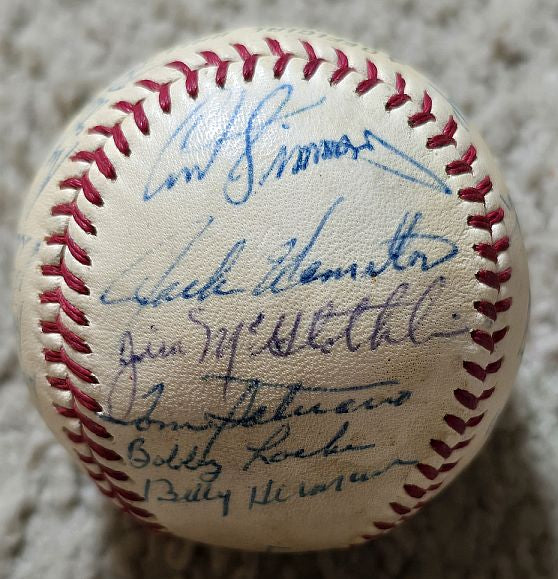 Curt Simmons
Jack Hamilton
Jim McGlothlin
Tom Satriano
Bobby Locke
Billy Herman